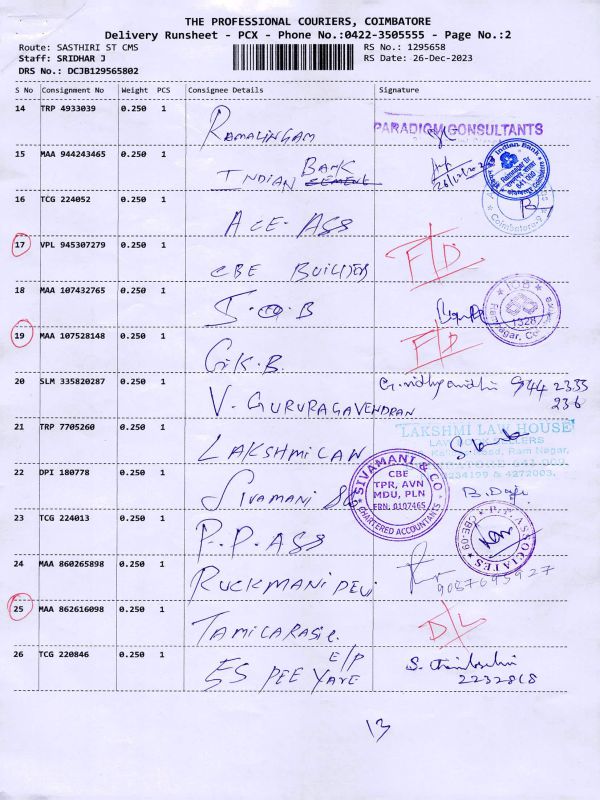 THE PROFESSIONAL COURIERS, COIMBATORE
Delivery Runsheet - PCX - Phone No.:0422-3505555 - Page No.:2
Route: SASTHIRI ST CMS
RS No.: 1295658
Staff: SRIDHAR J
RS Date: 26-Dec-2023
DRS No.: DCJB129565802
S No Consignment No Weight PCS Consignee Details Signature
14 TRP 4933039 0.250 1
RAMALINGAM
PARADIGM CONSULTANTS
15 MAA 944243465 0.250 1
INDIAN BANK
Indian Bank
16 TCG 224052 0.250 1
ACE-ASS
17 VPL 945307279 0.250 1
CBE BUILDER
F/D
18 MAA 107432765 0.250 1
IOB
1328
Ram Nagar,
19 MAA 107528148 0.250 1
G.K.B.
F/D
20 SLM 335820287 0.250 1
V. GURURAGAVENDRAN
944 2233
236
21 TRP 7705260 0.250 1
LAKSHMI LAW
LAKSHMI LAW HOUSE
LAW BOOK SELLERS
Road, Ram Nagar,
2234199 & 4272003.
22 DPI 180778 0.250 1
SIVAMANI
SIVAMANI & CO
CBE
TPR, AVN
MDU, PLN
FRN. 0107465
CHARTERED ACCOUNTANTS
23 TCG 224013 0.250 1
P.P.ASS
P.T. ASSOCIATES
CBE-09
24 MAA 860265898 0.250 1
RUCKMANI DEVI
9087695927
25 MAA 862616098 0.250 1
TAMILARASI
D/L
26 TCG 220846 0.250 1
E/P
SS PEE YARE
2232818
13